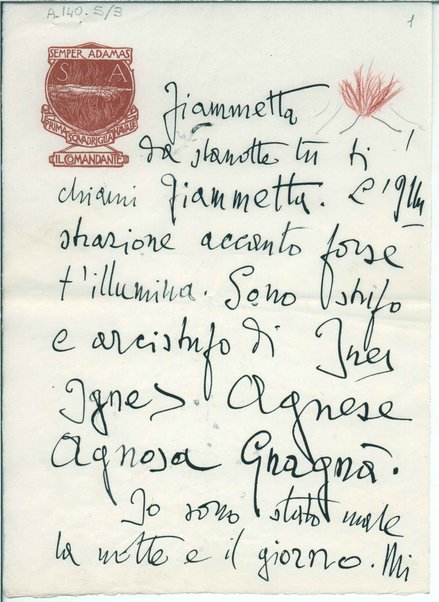 A.140.5/3
1
SEMPER ADAMAS
S A
PRIMA SQUADRIGLIA NAVALE
IL COMANDANTE
Fiammetta
da stanotte tu ti
chiami Fiammetta. L'Illu
strazione accanto forse
t'illumina. Sono stufo
e arcistufo di Ines
Ignes Agnese
Agnosa Gnagnà.
Io sono stato male
la notte e il giorno. Mi